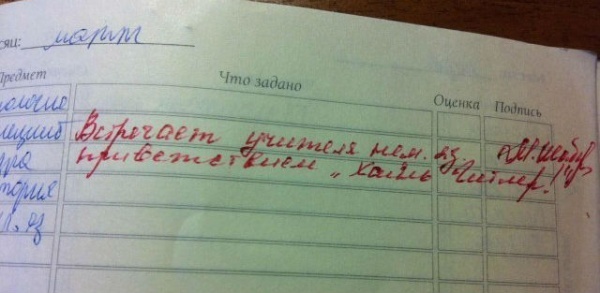 сяц: март
Предмет Что задано Оценка Подпись
ологие
Встречает учителя нем. яз
приветствием „Хайль Гитлер!"
тория